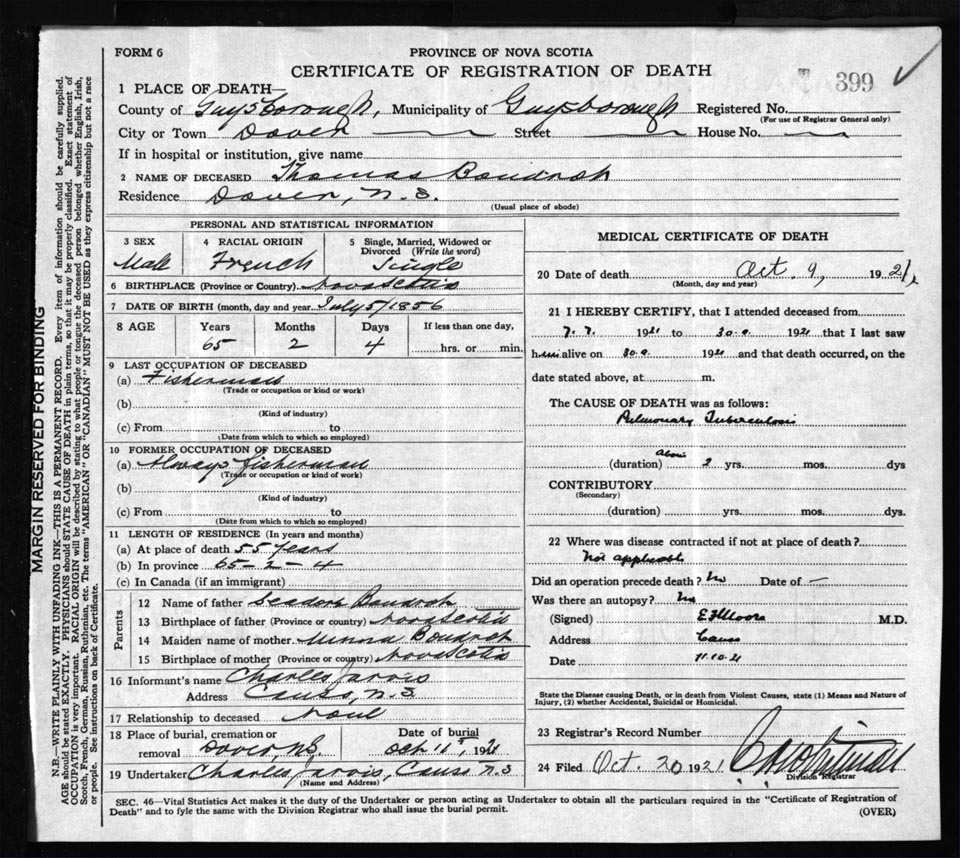 FORM 6
PROVINCE OF NOVA SCOTIA
CERTIFICATE OF REGISTRATION OF DEATH
399
1 PLACE OF DEATH—
County of Guysborough, Municipality of Guysborough Registered No.
(For use of Registrar General only)
City or Town Dover Street House No.
If in hospital or institution, give name
2 NAME OF DECEASED Thomas Boudrot
Residence Dover, N.S.
(Usual place of abode)
PERSONAL AND STATISTICAL INFORMATION
3 SEX 4 RACIAL ORIGIN 5 Single, Married, Widowed or Divorced (Write the word)
Male French Single
6 BIRTHPLACE (Province or Country) Nova Scotia
7 DATE OF BIRTH (month, day and year) July 5/1856
8 AGE Years Months Days If less than one day,
65 2 4 hrs. or min.
9 LAST OCCUPATION OF DECEASED
(a) Fisherman
(Trade or occupation or kind or work)
(b)
(Kind of industry)
(c) From to
(Date from which to which so employed)
10 FORMER OCCUPATION OF DECEASED
(a) Always fisherman
(Trade or occupation or kind of work)
(b)
(Kind of industry)
(c) From to
(Date from which to which so employed)
11 LENGTH OF RESIDENCE (In years and months)
(a) At place of death 55 years
(b) In province 65-2-4
(c) In Canada (if an immigrant)
Parents
12 Name of father Boudrot
13 Birthplace of father (Province or country) Nova Scotia
14 Maiden name of mother Boudrot
15 Birthplace of mother (Province or country) Nova Scotia
16 Informant's name Charles Jarvis
Address Canso, N.S
17 Relationship to deceased None
18 Place of burial, cremation or Date of burial
removal Dover N.S. Oct 11, 1921
19 Undertaker Charles Jarvis, Canso N.S
(Name and Address)
MEDICAL CERTIFICATE OF DEATH
20 Date of death Oct. 9, 1921
(Month, day and year)
21 I HEREBY CERTIFY, that I attended deceased from
7.7. 1921 to 30.9. 1921 that I last saw
him alive on 30.9. 1921 and that death occurred, on the
date stated above, at m.
The CAUSE OF DEATH was as follows:
Pulmonary Tuberculosis
(duration) About 2 yrs. mos. dys
CONTRIBUTORY
(Secondary)
(duration) yrs. mos. dys.
22 Where was disease contracted if not at place of death?
Not applicable
Did an operation precede death? No Date of —
Was there an autopsy? No
(Signed) E F Moore M.D.
Address Canso
Date 11.10.21
State the Disease causing Death, or in death from Violent Causes, state (1) Means and Nature of
Injury, (2) whether Accidental, Suicidal or Homicidal.
23 Registrar's Record Number
24 Filed Oct. 20 1921
Division Registrar
SEC. 46—Vital Statistics Act makes it the duty of the Undertaker or person acting as Undertaker to obtain all the particulars required in the "Certificate of Registration of
Death" and to fyle the same with the Division Registrar who shall issue the burial permit. (OVER)
MARGIN RESERVED FOR BINDING
N.B.—WRITE PLAINLY WITH UNFADING INK—THIS IS A PERMANENT RECORD. Every item of information should be carefully supplied.
AGE should be stated EXACTLY. PHYSICIANS should STATE CAUSE OF DEATH in plain terms, so that it may be properly classified. Exact statement of
OCCUPATION is very important. RACIAL ORIGIN will be described by stating to what people or tongue the deceased person belonged whether English, Irish,
Scotch, French, German, Russian, Ruthenian, etc. The terms "AMERICAN" OR "CANADIAN" MUST NOT BE USED as they express citizenship but not a race
or people. See instructions on back of Certificate.